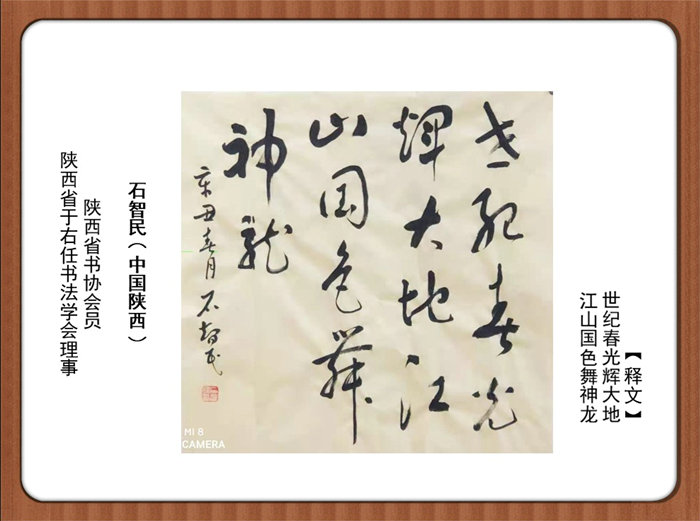 【释文】
世纪春光辉大地
江山国色舞神龙
世纪春光
辉大地江
山国色舞
神龙
辛丑春月石智民
MI 8
CAMERA
石智民（中国陕西）
陕西省书协会员
陕西省于右任书法学会理事